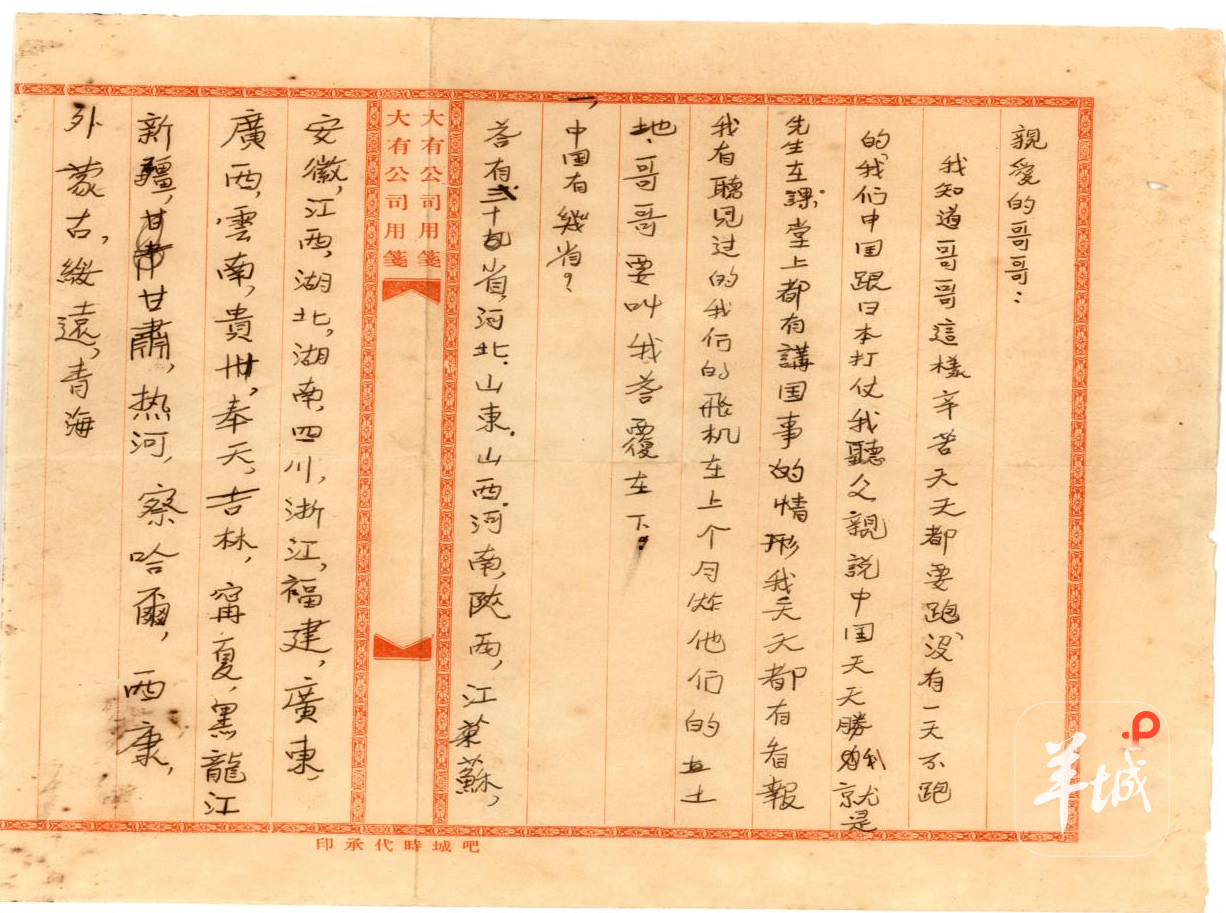 親愛的哥哥：
我知道哥哥這樣辛苦天天都要跑没有一天不跑
的我们中国跟日本打仗我聽父親説中国天天勝我就是
先生在課堂上都有講国事的情形我天天都有看報
我有聽見过的我们的飛机在上个月炸他们的土
地.哥哥要叫我答覆在下.
一,中国有幾省？
答有弍十九省,河北.山東.山西.河南,陝西,江蘇,
大有公司用箋
大有公司用箋
安徽,江西,湖北,湖南,四川,浙江,福建,廣東,
廣西,雲南,貴州,奉天,吉林,甯夏,黑龍江
新疆,甘肅,热河,察哈爾,西康,
外蒙古,綏遠,青海
吧城時代承印
羊城